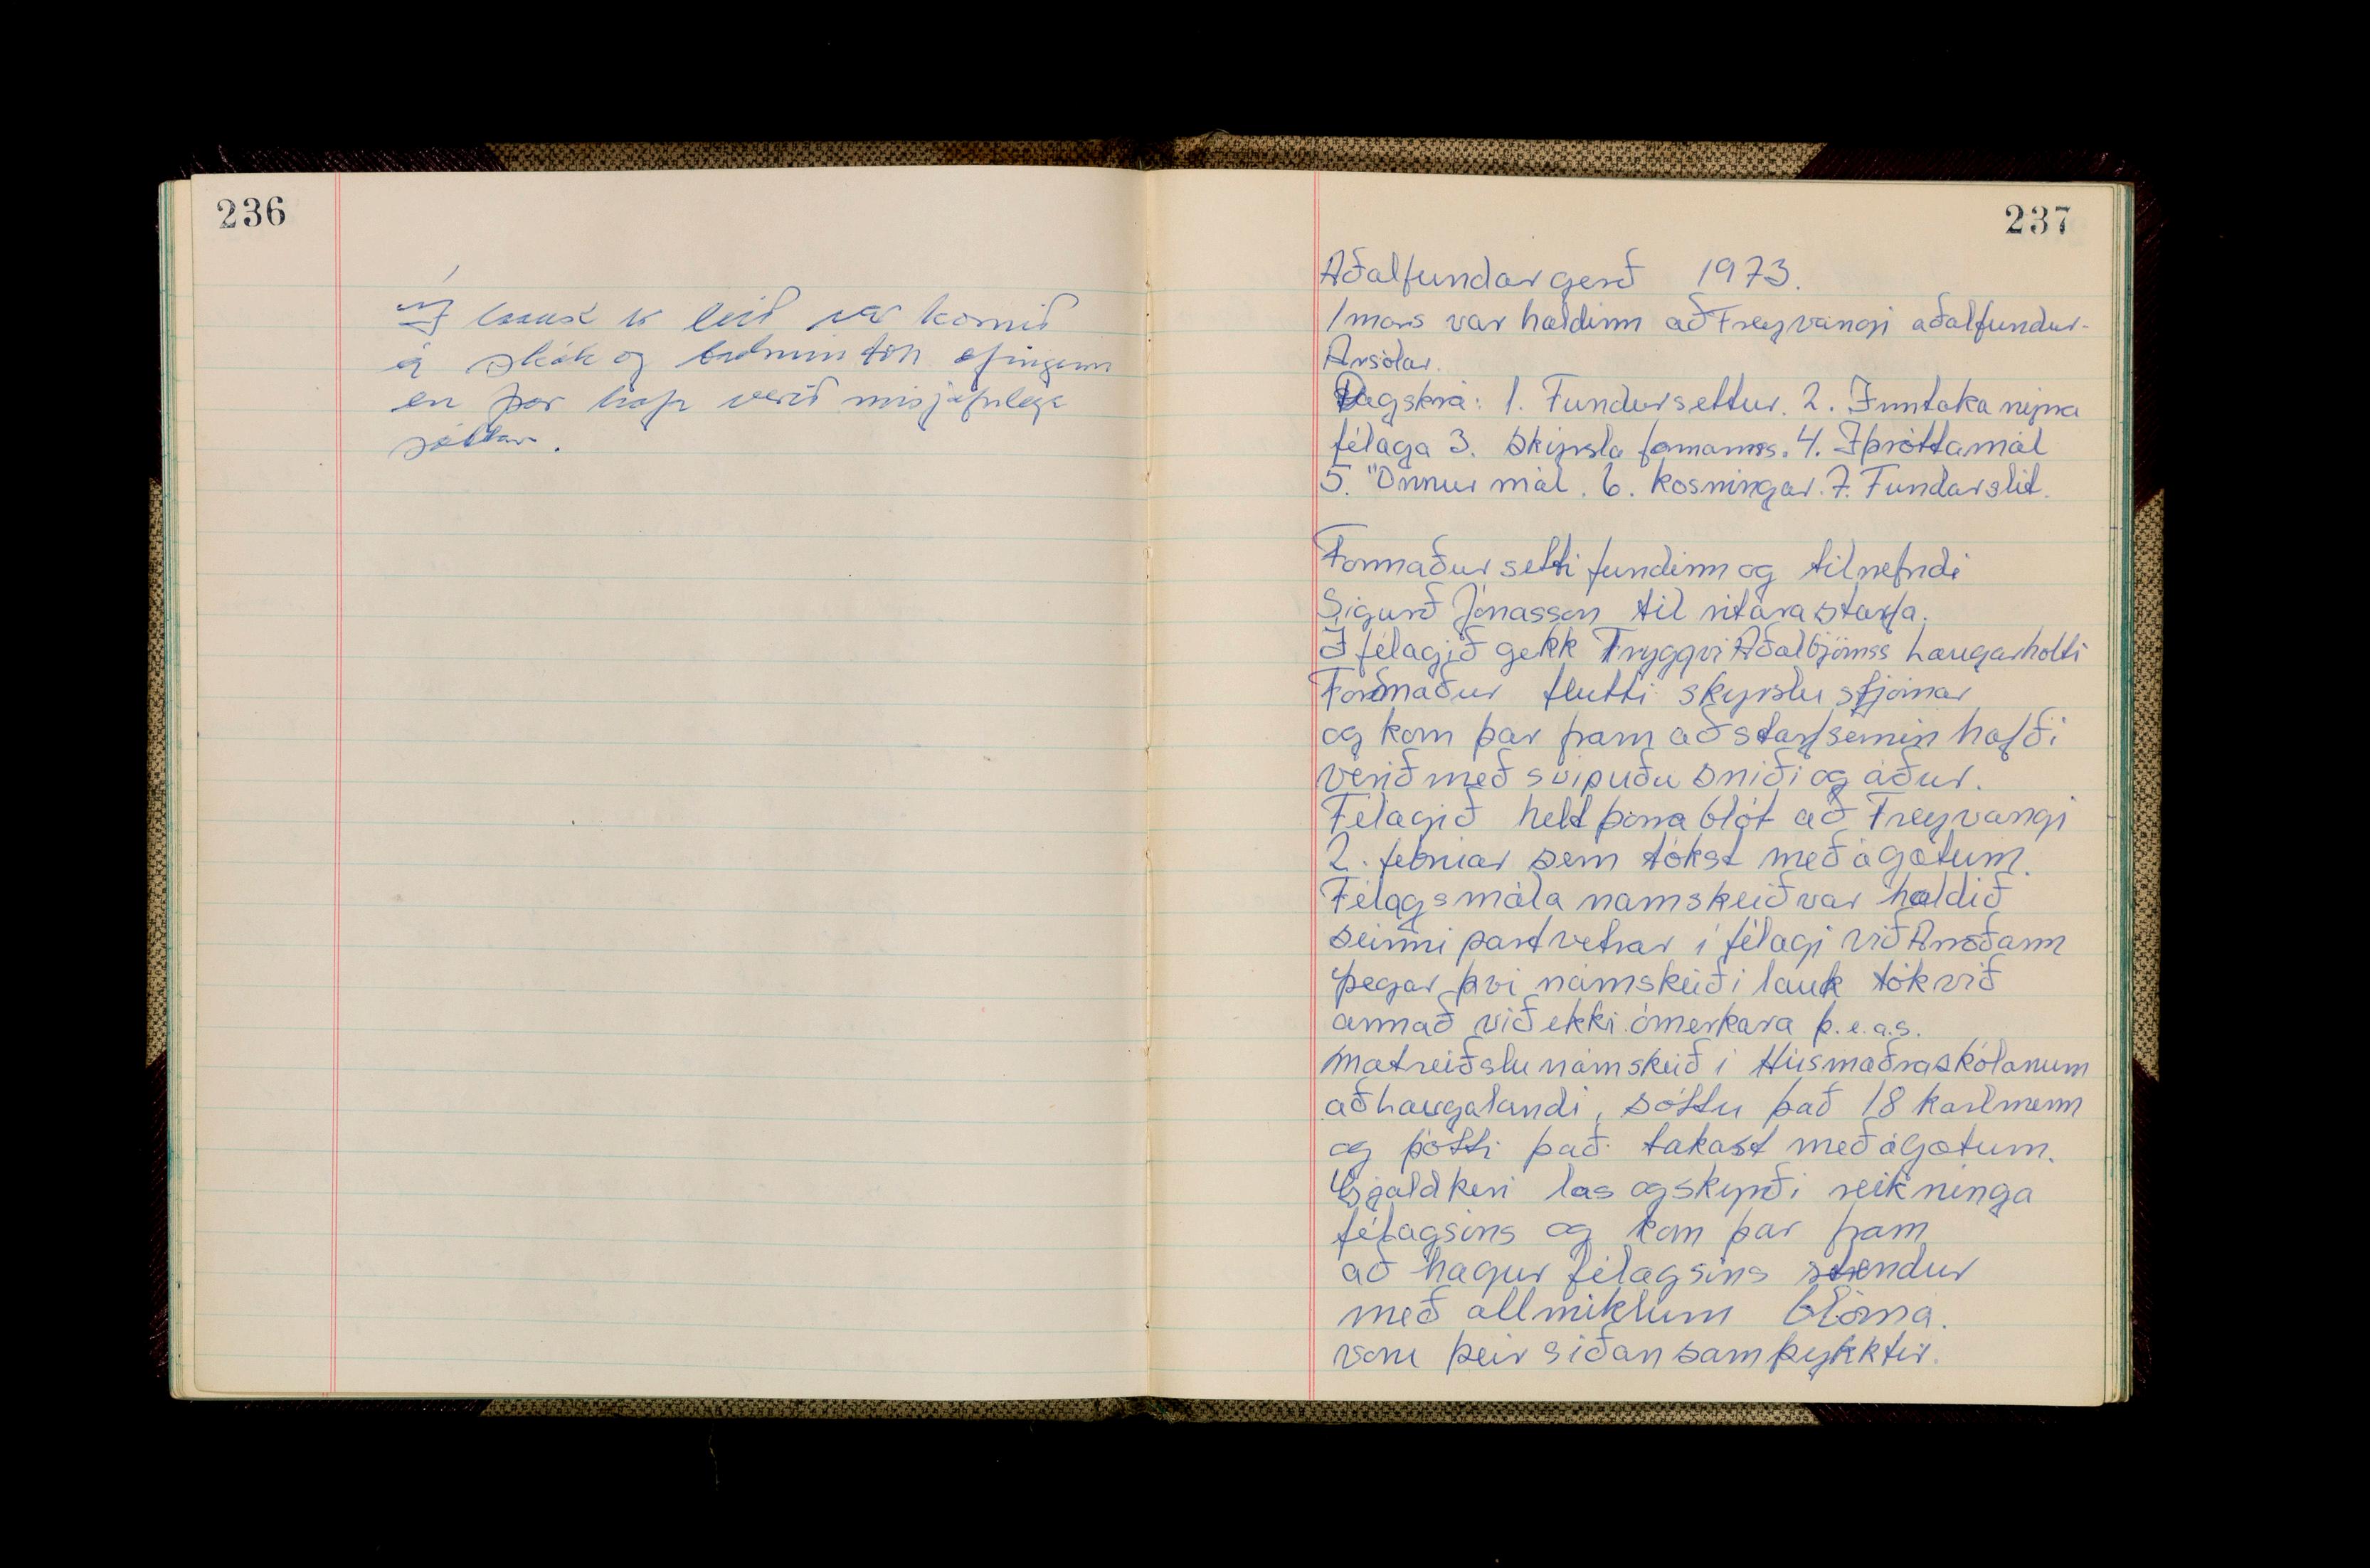 236
Er haust leið var komið
á skák og badminton æfingum
en þær hafa verið misjafnlega
sóttar.
237
Aðalfundargerð 1973.
1 mars var haldinn að Freyvangi aðalfundur
Ársólar.
Dagskrá: 1. Fundursettur. 2. Inntaka nýrra
félaga 3. Skýrsla formanns. 4. Íþróttamál
5. Önnur mál. 6. Kosningar. 7. Fundarslit.
Formaður setti fundinn og tilnefndi
Sigurð Jónasson til ritara starfa.
Í félagið gekk Tryggvi Aðalbjörnss Laugarholti
Formaður flutti skýrslu stjórnar
og kom þar fram að starfsemin hafði
verið með svipuðu sniði og áður.
Félagið helt þorrablót að Freyvangi
2. febrúar sem tókst með ágætum.
Félagsmála námskeið var haldið
seinni part vetrar í félagi við Árroðann
þegar því námskeiði lauk tók við
annað við ekki ómerkara þ.e.a.s.
matreiðslu námskeið í Húsmæðraskólanum
að Laugalandi, sóttu það 18 karlmenn
og þótti það takast með ágætum.
Gjaldkeri las og skyrði reikninga
félagsins og kom þar fram
að hagur félagsins stendur
með allmiklum blóma.
voru þeir síðan samþykktir.